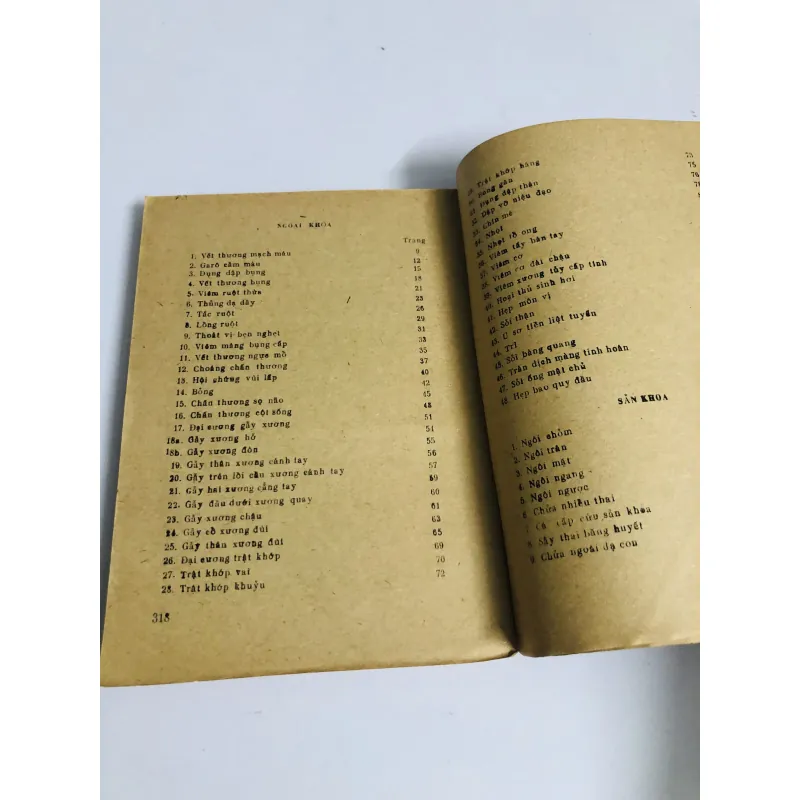 NGOẠI KHOA
Trang
1. Vết thương mạch máu 9
2. Garô cầm máu 12
3. Đụng dập bụng 15
4. Vết thương bụng 18
5. Viêm ruột thừa 21
6. Thủng dạ dày 23
7. Tắc ruột 26
8. Lồng ruột 29
9. Thoát vị bẹn nghẹt 31
10. Viêm màng bụng cấp 33
11. Vết thương ngực mở 35
12. Choáng chấn thương 37
13. Hội chứng vùi lấp 40
14. Bỏng 42
15. Chấn thương sọ não 45
16. Chấn thương cột sống 48
17. Đại cương gẫy xương 51
18a. Gẫy xương hở 54
18b. Gẫy xương đòn 55
19. Gẫy thân xương cánh tay 56
20. Gẫy trên lồi cầu xương cánh tay 57
21. Gẫy hai xương cẳng tay 59
22. Gẫy đầu dưới xương quay 60
23. Gẫy xương chậu 61
24. Gẫy cổ xương đùi 63
25. Gẫy thân xương đùi 65
26. Đại cương trật khớp 69
27. Trật khớp vai 70
28. Trật khớp khuỷu 72
318
Trật khớp háng 73
Bong gân 75
đụng dập thận 76
32. Dập vỡ niệu đạo
33. Chín mé
34. Nhọt
35. Nhọt tổ ong
36. Viêm tấy bàn tay
37. Viêm cơ
38. Viêm cơ đái chậu
39. Viêm xương tủy cấp tính
40. Hoại thư sinh hơi
41. Hẹp môn vị
42. Sỏi thận
43. U sơ tiền liệt tuyến
44. Trĩ
45. Sỏi bàng quang
46. Tràn dịch màng tinh hoàn
47. Sỏi ống mật chủ
48. Hẹp bao quy đầu
SẢN KHOA
1. Ngôi chỏm
2. Ngôi trán
3. Ngôi mặt
4. Ngôi ngang
5. Ngôi ngược
6. Chửa nhiều thai
7. Ca cấp cứu sản khoa
8. Sẩy thai băng huyết
9. Chửa ngoài dạ con